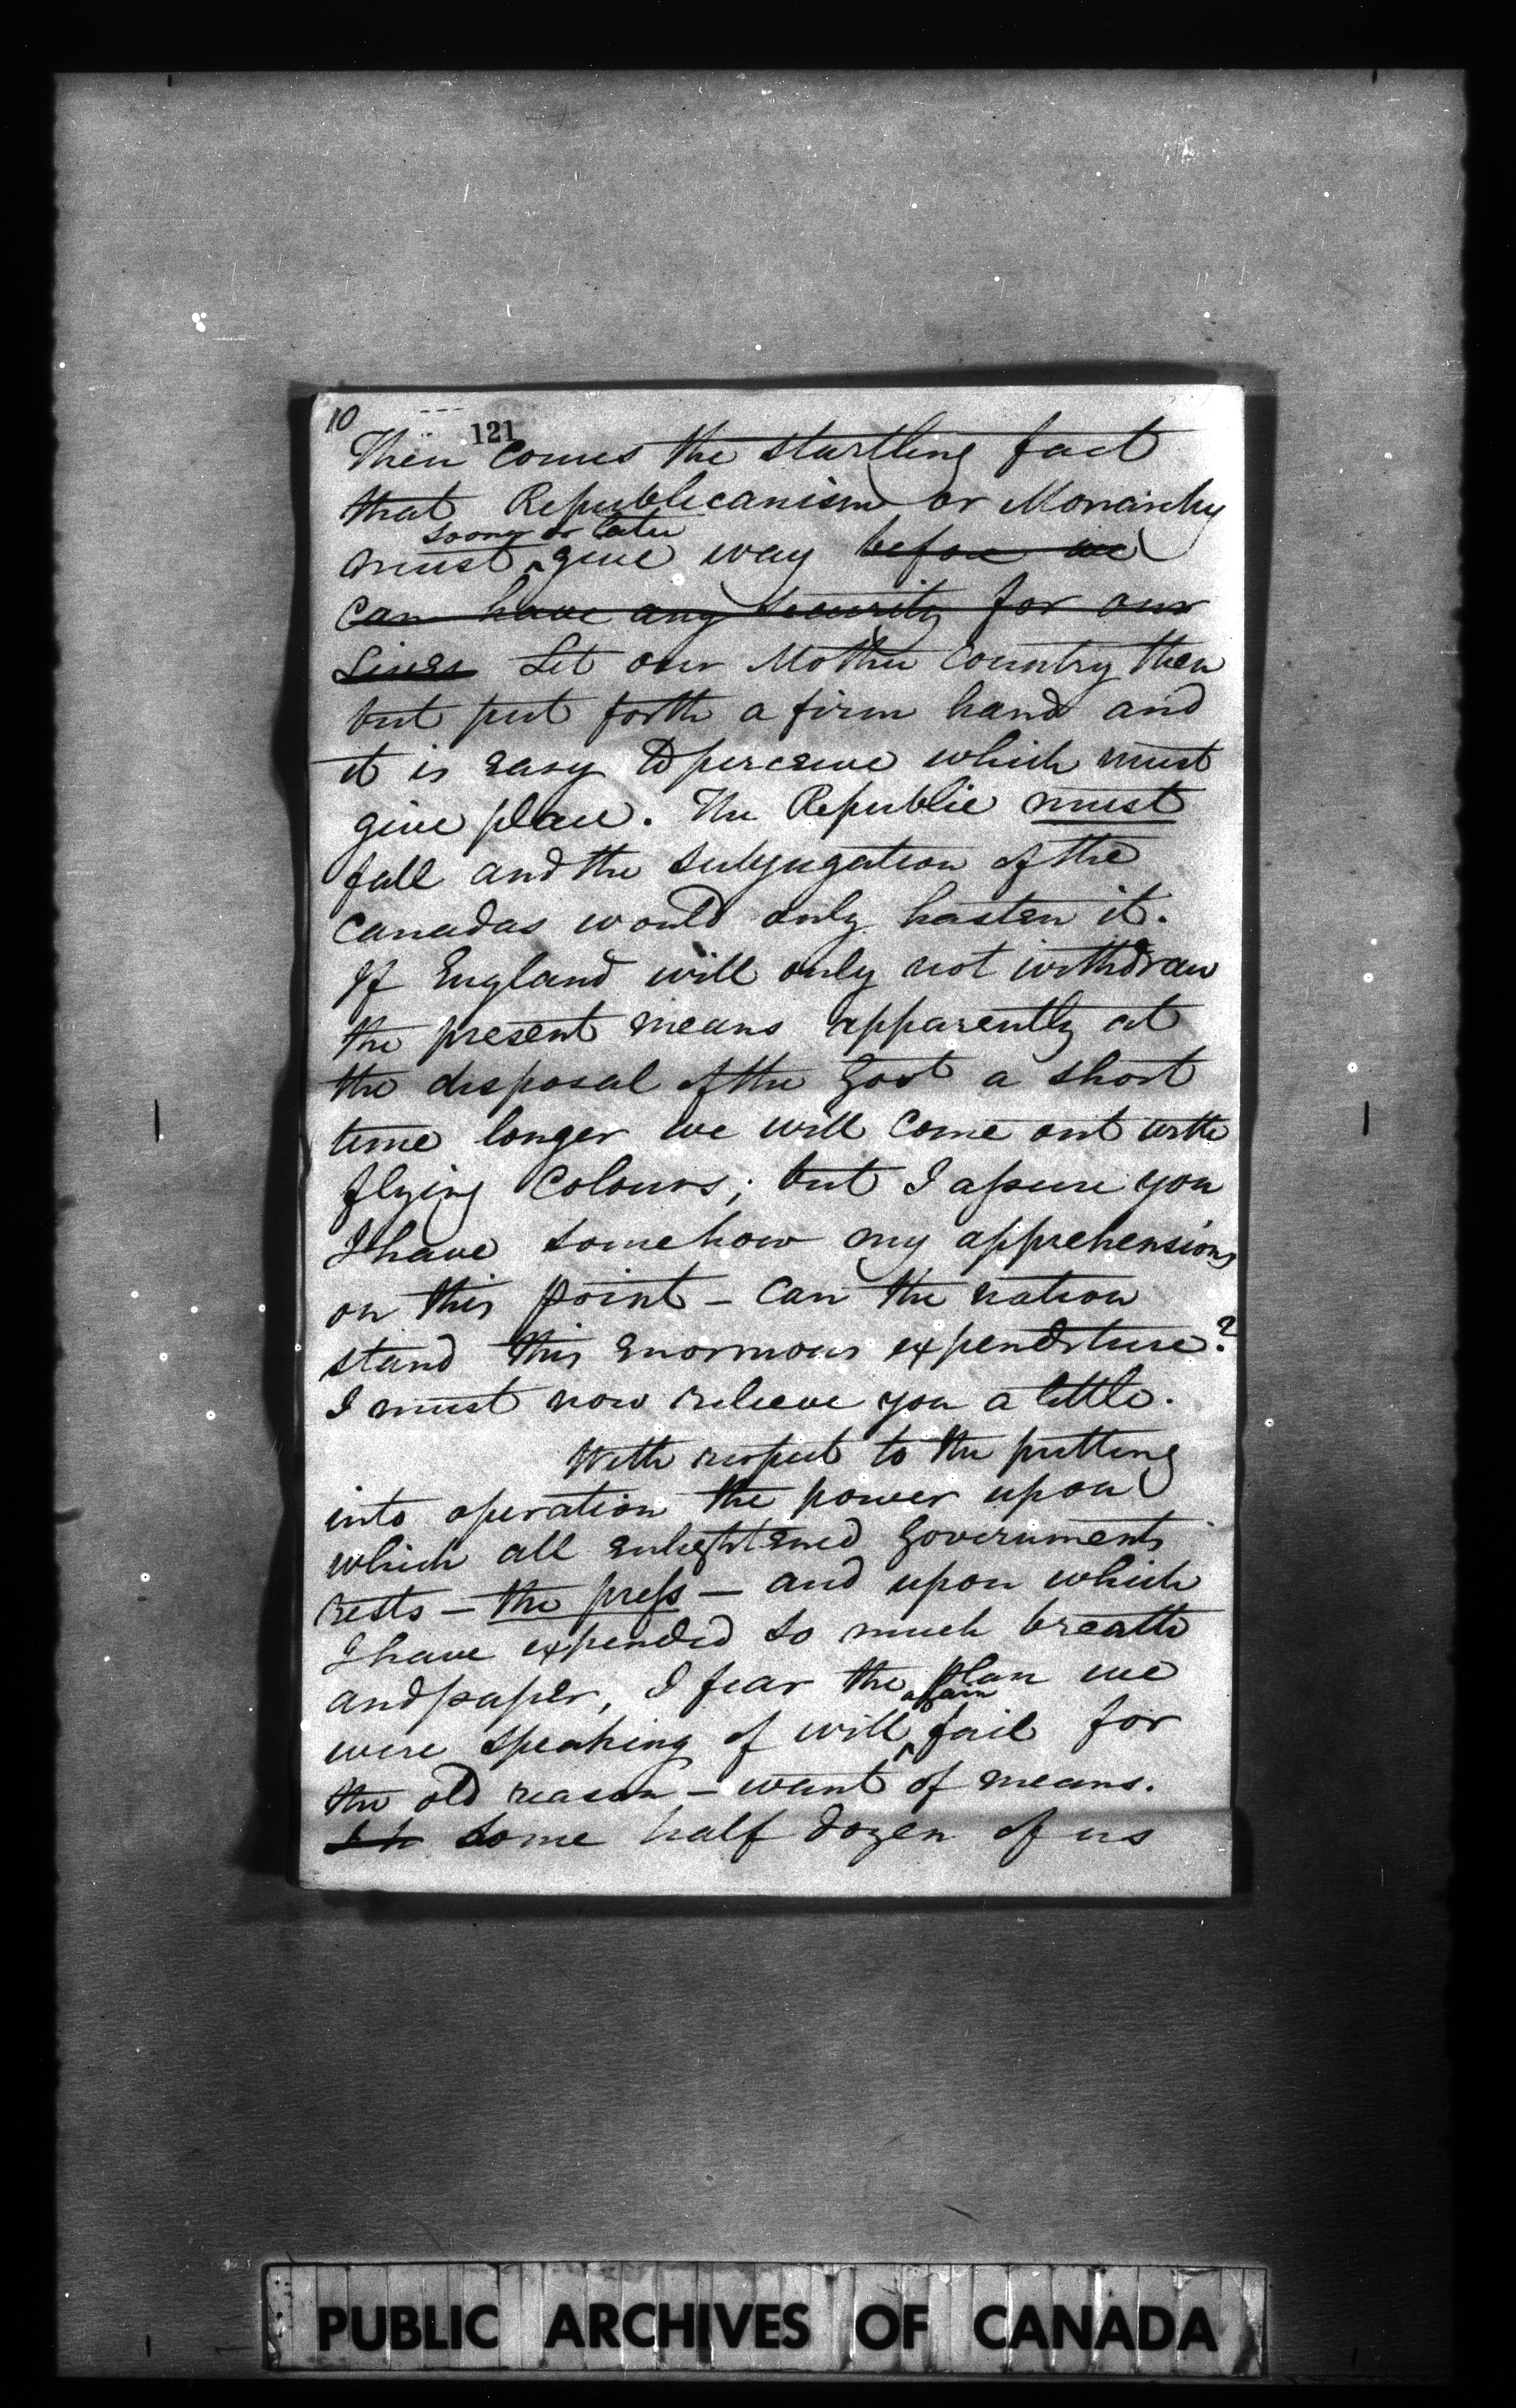 10
121
Then comes the startling fact
that Republicanism or Monarchy
soon or later
must ^ give way before we
can have any security for our
Lives Let our Mother Country then
but put forth a firm hand and
it is easy to perceive which must
give place. The Republic must
fall and the subjugation of the
Canadas would only hasten it.
If England will only not withdraw
the present means apparently at
the disposal of the Govt a short
time longer we will come out with
flying colours; but I assure you
I have somehow my apprehensions
on this point – Can the nation
stand this enormous expenditure?
I must now relieve you a little.
With respect to the putting
into operation the power upon
which all enlightened Governments
rests – the press – and upon which
I have expended so much breath
and paper, I fear the plan we
again
were speaking of will ^ fail for
the old reason – want of means.
Some half dozen of us
PUBLIC ARCHIVES OF CANADA